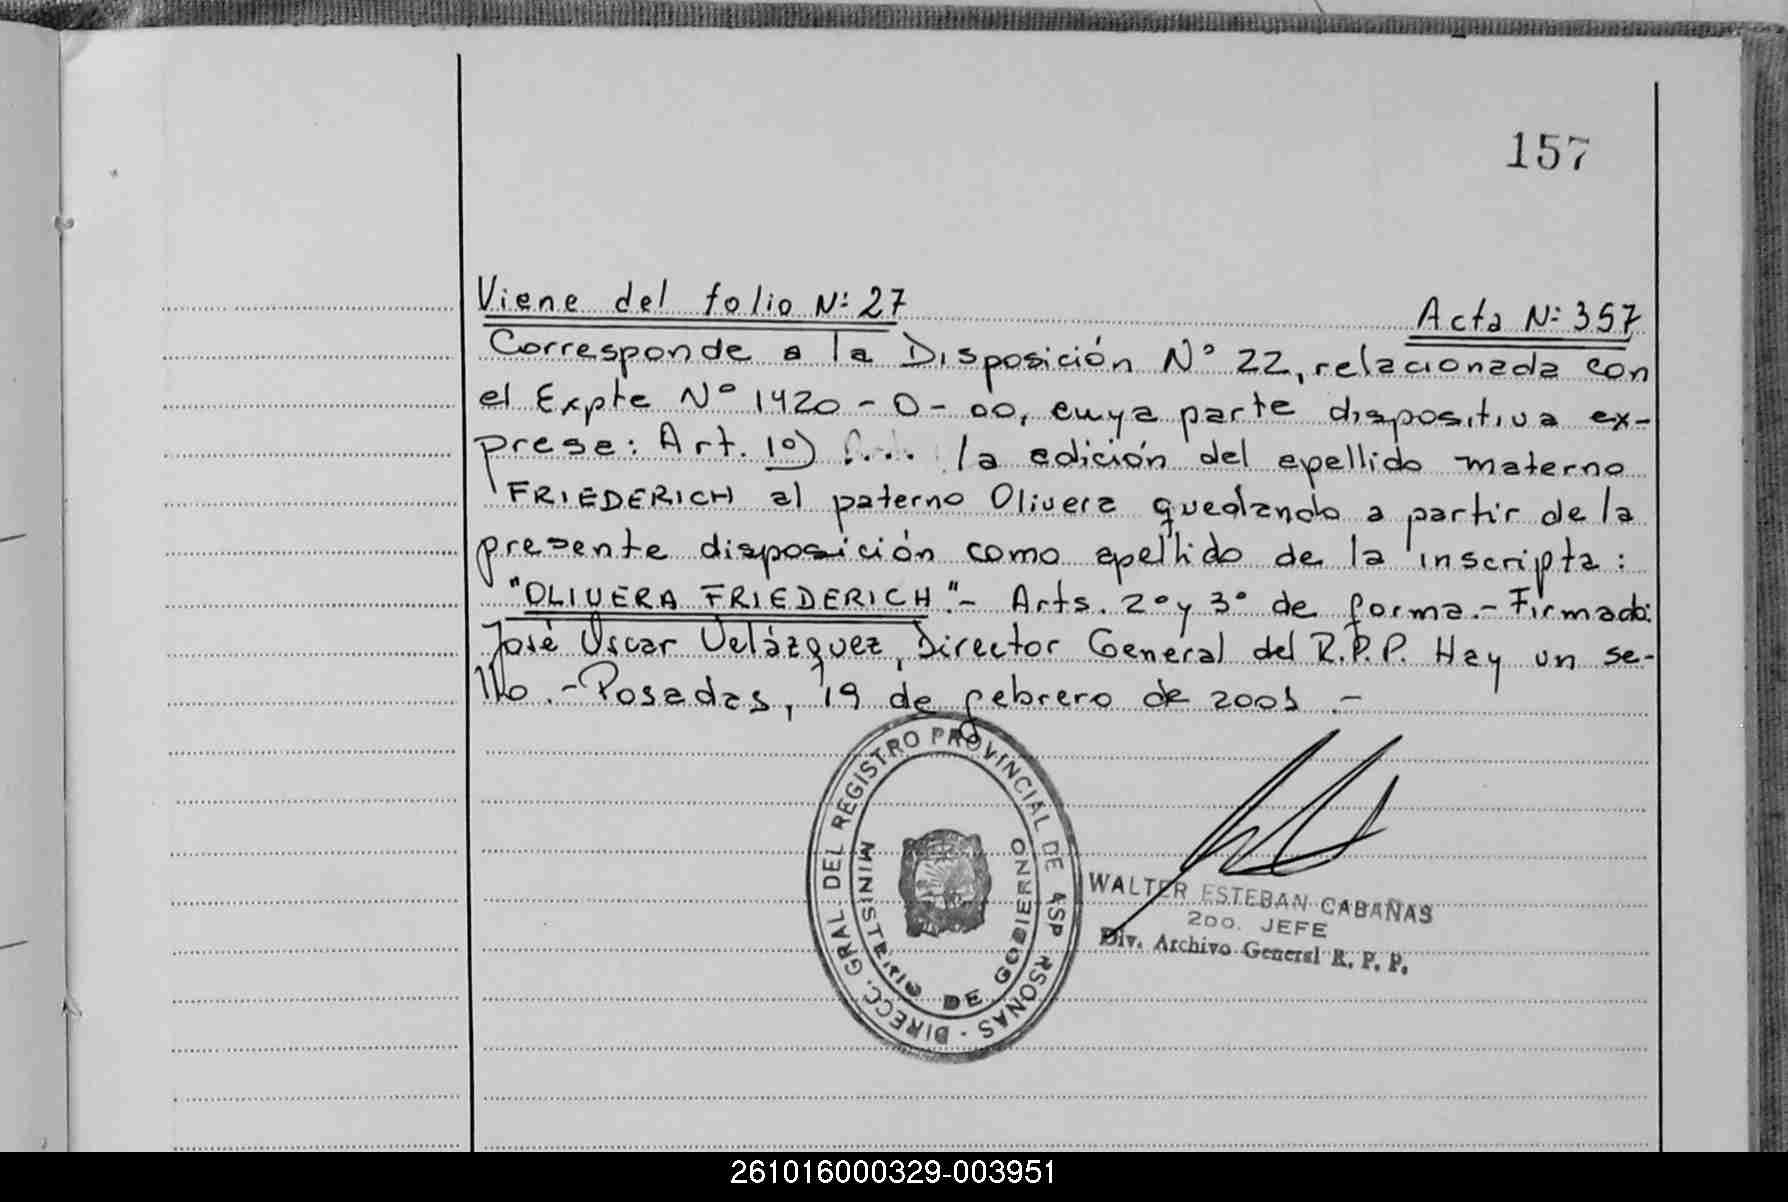 157
Viene del folio Nº 27
Acta Nº 357
Corresponde a la Disposición Nº 22, relacionada con
el Expte Nº 1420-0-00, cuya parte dispositiva ex-
presa: Art. 1º) .... la adición del apellido materno
FRIEDERICH al paterno Olivera quedando a partir de la
presente disposición como apellido de la inscripta:
"OLIVERA FRIEDERICH".- Arts. 2º y 3º de forma.- Firmado:
José Oscar Velázquez, Director General del R.P.P. Hay un se-
llo.- Posadas, 19 de febrero de 2001.-
DIRECC. GRAL. DEL REGISTRO PROVINCIAL DE RSONAS
MINISTERIO DE GOBIERNO
WALTER ESTEBAN CABAÑAS
2DO. JEFE
Div. Archivo General R. P. P.
261016000329-003951